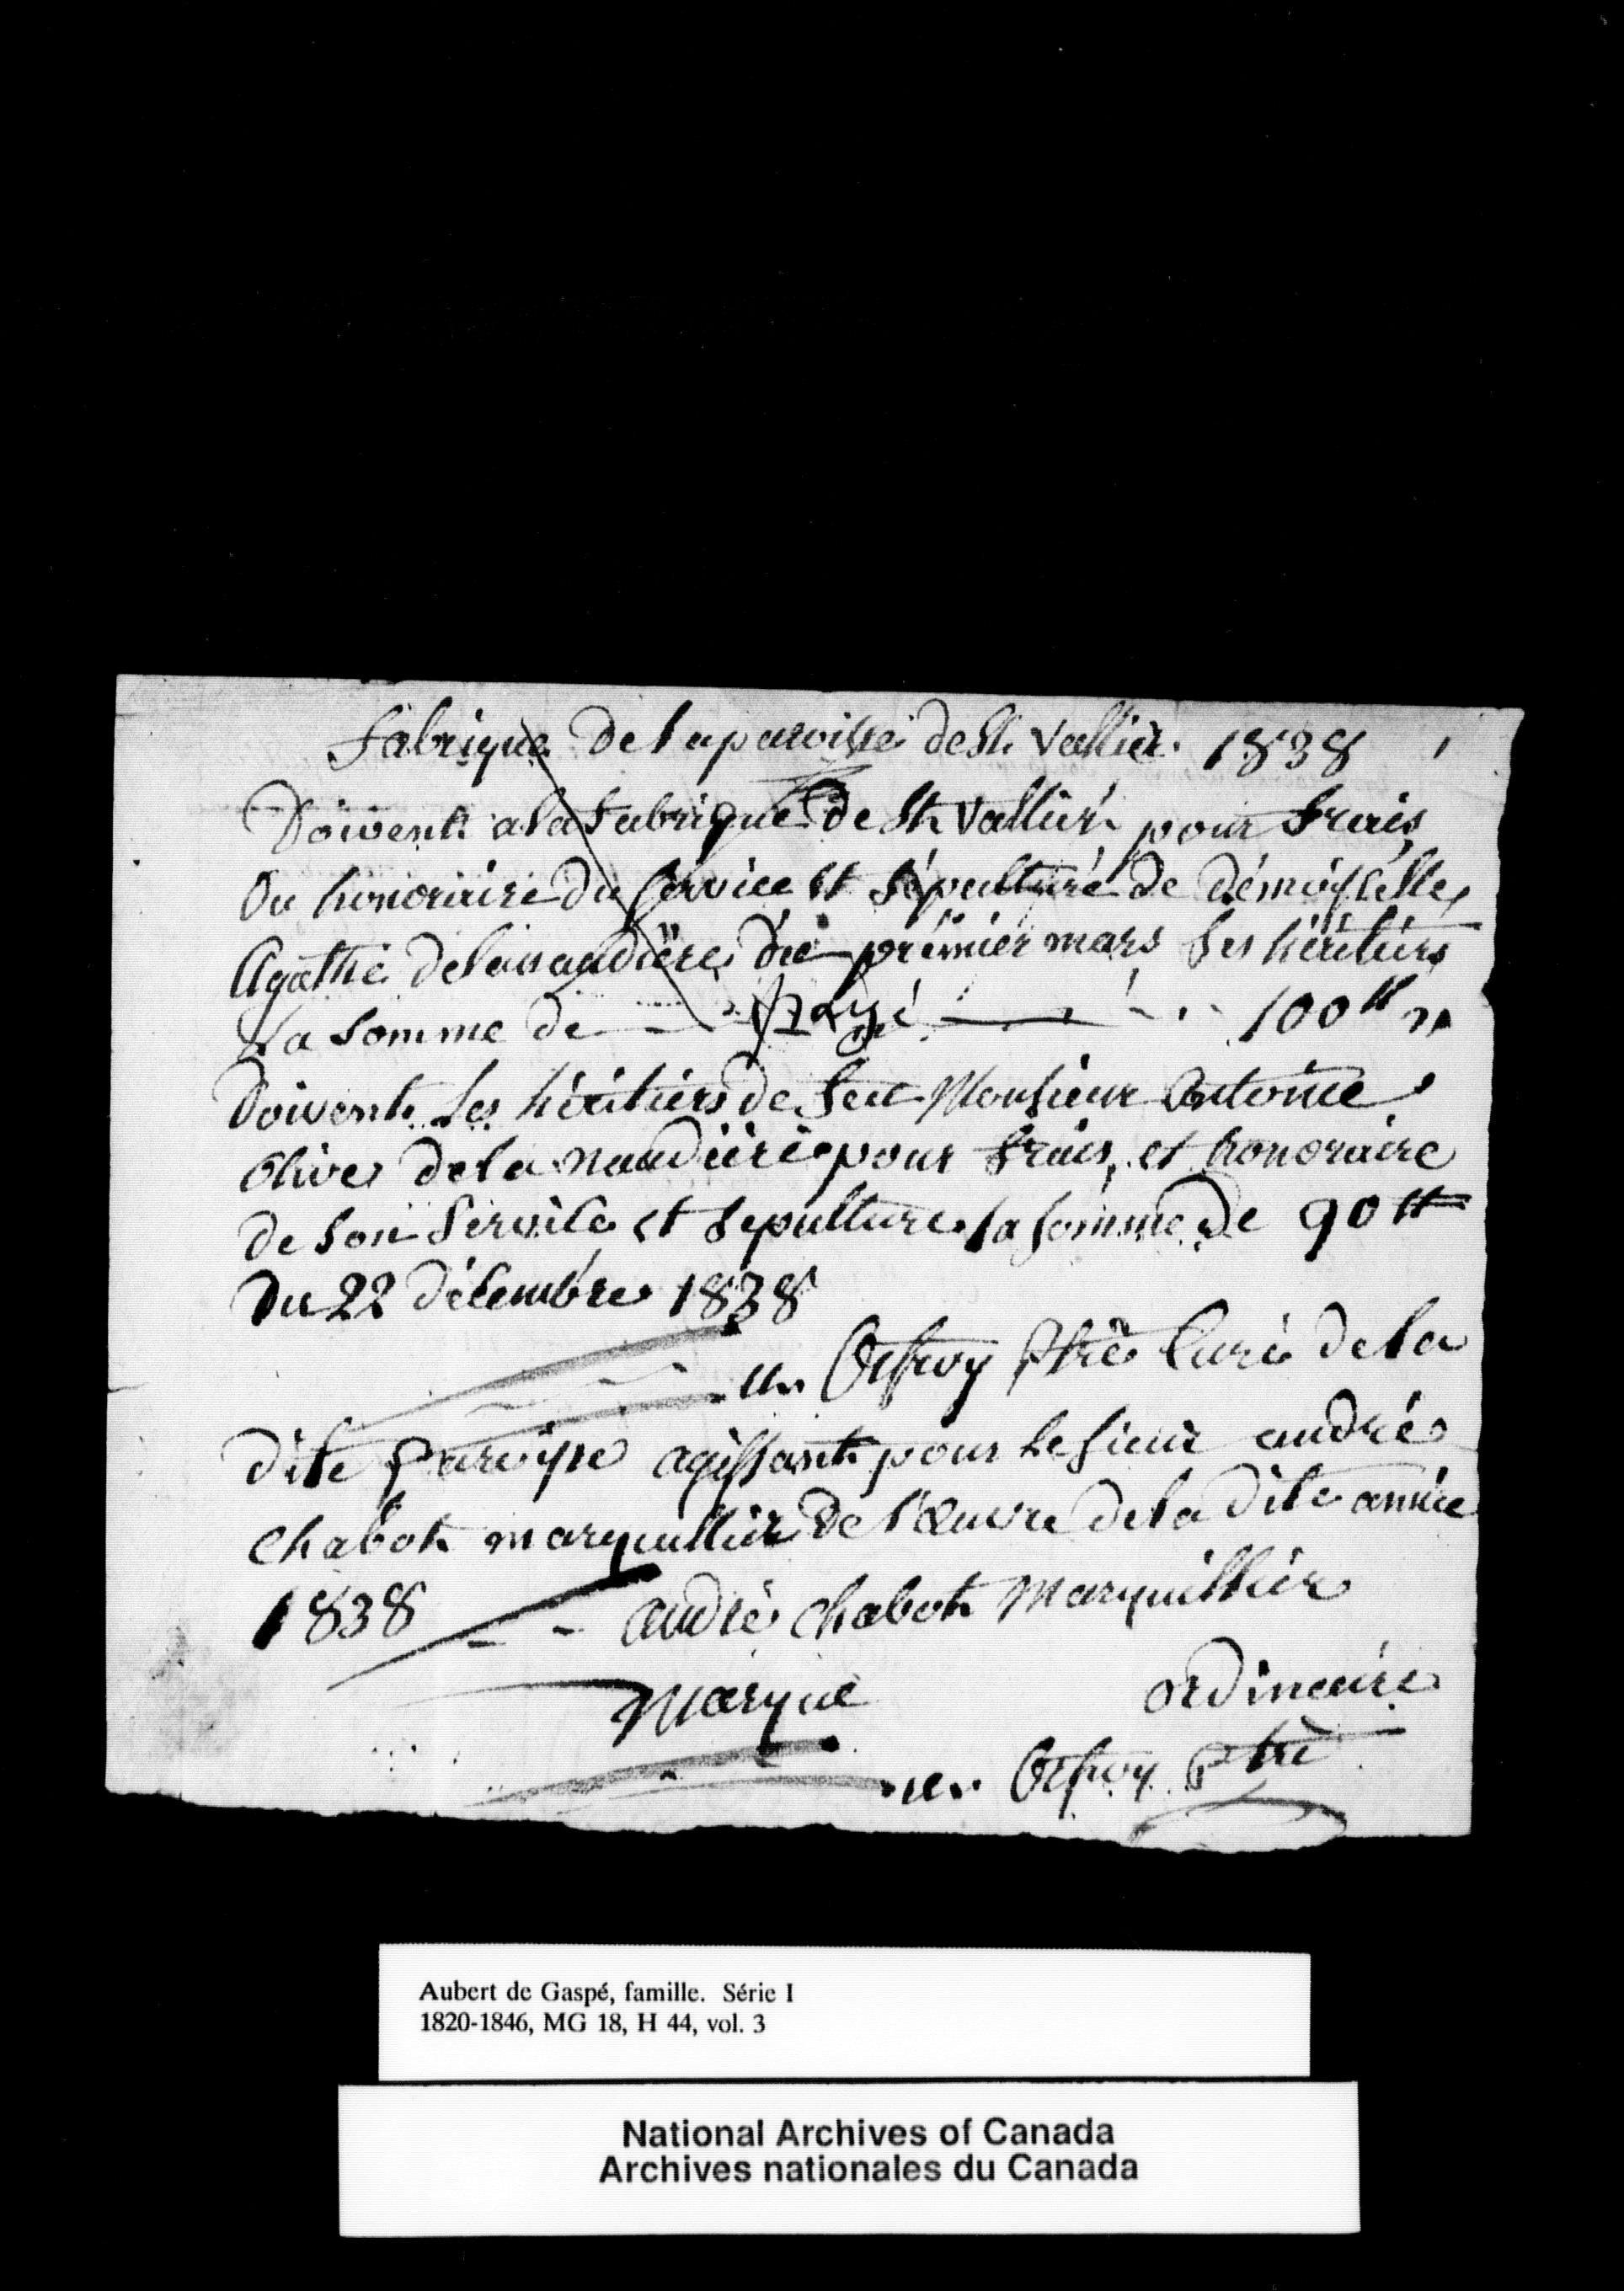 fabrique De la paroisse de St Vallier 1838
Doivent a la fabrique de St Vallier pour frais
Ou honoraire du service et sépulture de demoiselle
Agathe delanaudière du premier mars Ses héritiers
La somme de payé 100 ₶ "
Doivent Les héritiers de feu Monsieur Antoine
Olive de la naudière pour frais, et honoraire
de son Service et sepulture la somme De 90 ₶
Du 22 décembre 1838
Orfroy Ptre Curé de la
dite paroisse agissant pour le sieur andré
Chabot marguillier de l'Œuvre de la dite année
1838 - - andré Chabot Marguillier
Marque ordinaire
Orfroy Ptre
Aubert de Gaspé, famille. Série I
1820-1846, MG 18, H 44, vol. 3
National Archives of Canada
Archives nationales du Canada